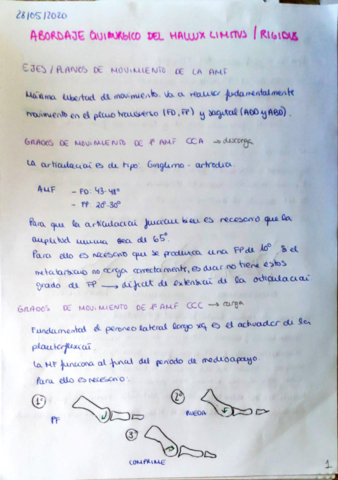 28/05/2020
ABORDAJE QUIRÚRGICO DEL HALLUX LIMITUS / RIGIDUS
EJES / PLANOS DE MOVIMIENTO DE LA AMF
Máxima libertad de movimiento. Va a realizar fundamentalmente
movimiento en el plano transverso (FD, FP) y sagital (ADD y ABD).
GRADOS DE MOVIMIENTO DE 1ª AMF CCA → descarga
La articulación es de tipo Ginglimo-artrodia.
AMF - FD. 43-48°
- FP. 28-30°
Para que la articulación funcione bien es necesario que la
amplitud mínima sea de 65°.
Para ello es necesario que se produzca una FP de 10°. Si el
metatarsiano no carga correctamente, es decir no tiene estos
grados de FP → déficit de extensión de la articulación
GRADOS DE MOVIMIENTO DE 1ª AMF CCC → carga
Fundamental el peroneo lateral largo xq es el activador de la
plantarflexión.
La MF funciona al final del periodo de medioapoyo.
Para ello es necesario:
1º
PF
2º
RUEDA
3º
COMPRIME
1